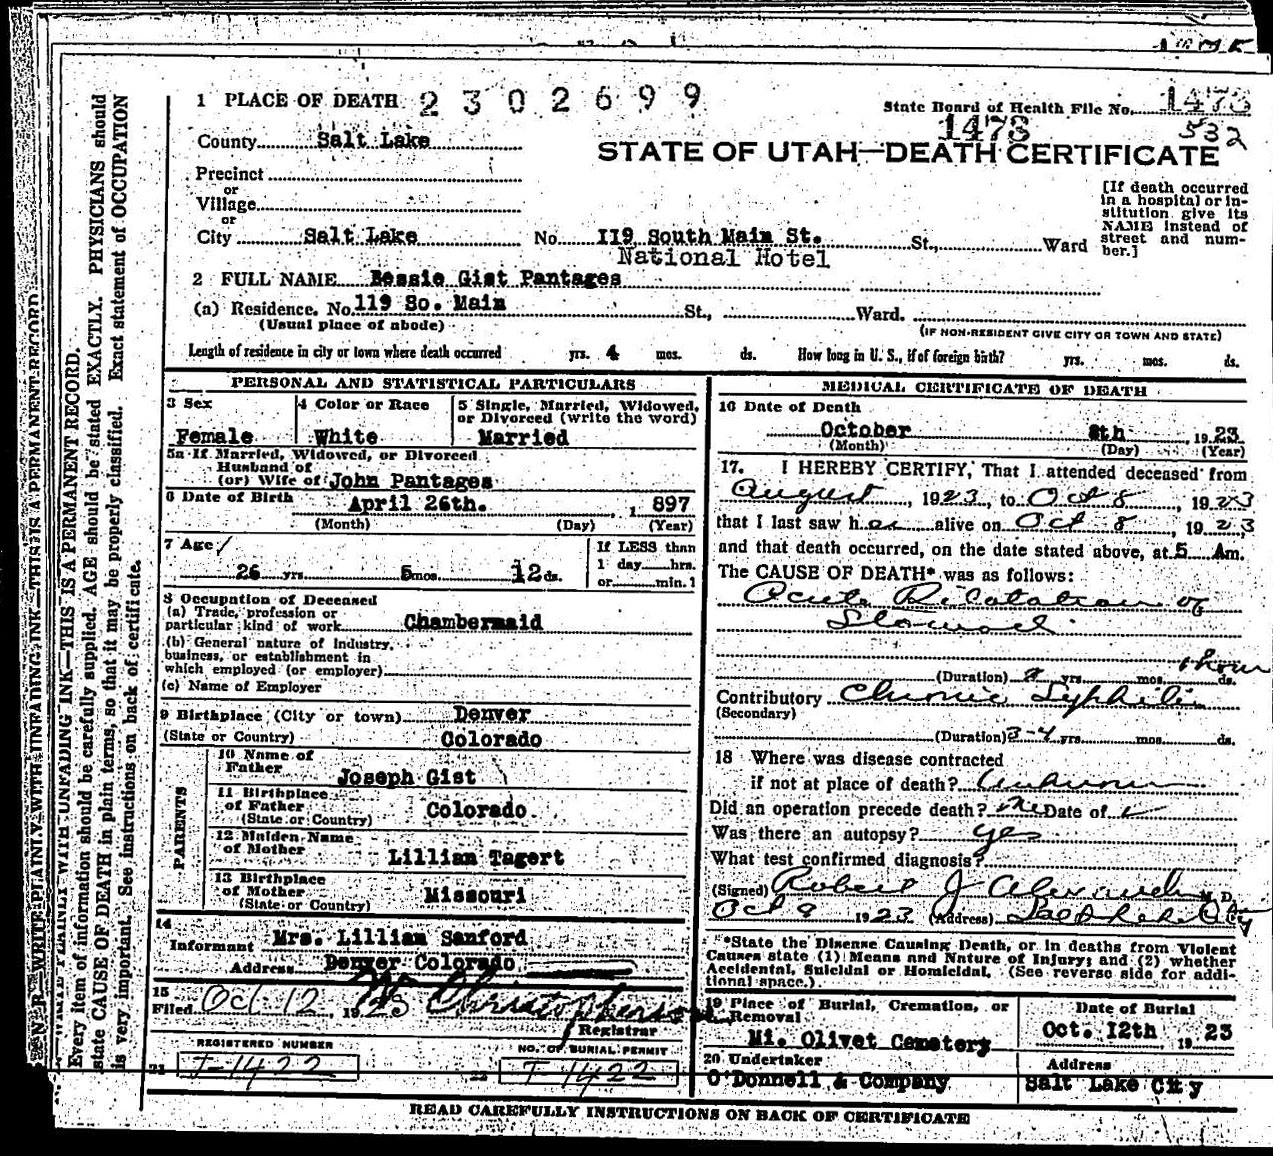 1 PLACE OF DEATH 2302699
State Board of Health File No. 1473
1473 532
County Salt Lake
STATE OF UTAH—DEATH CERTIFICATE
Precinct
or
Village
or
City Salt Lake No. 119 South Main St. St., Ward
National Hotel
[If death occurred
in a hospital or in-
stitution give its
NAME instead of
street and num-
ber.]
2 FULL NAME Bessie Gist Pantages
(a) Residence. No. 119 So. Main St., Ward.
(Usual place of abode) (IF NON-RESIDENT GIVE CITY OR TOWN AND STATE)
Length of residence in city or town where death occurred yrs. 4 mos. ds. How long in U. S., if of foreign birth? yrs. mos. ds.
PERSONAL AND STATISTICAL PARTICULARS
3 Sex 4 Color or Race 5 Single, Married, Widowed,
or Divorced (write the word)
Female White Married
5a If Married, Widowed, or Divorced
Husband of
(or) Wife of John Pantages
6 Date of Birth April 26th. , 1 897
(Month) (Day) (Year)
7 Age 26 yrs. 5 mos. 12 ds.
If LESS than
1 day hrs.
or min.
8 Occupation of Deceased
(a) Trade, profession or
particular kind of work Chambermaid
(b) General nature of industry,
business, or establishment in
which employed (or employer)
(c) Name of Employer
9 Birthplace (City or town) Denver
(State or Country) Colorado
PARENTS
10 Name of
Father Joseph Gist
11 Birthplace
of Father
(State or Country) Colorado
12 Maiden Name
of Mother Lillian Tagert
13 Birthplace
of Mother
(State or Country) Missouri
14
Informant Mrs. Lillian Sanford
Address Denver Colorado
15
Filed Oct 12, 1923 Christopherson
Registrar
REGISTERED NUMBER NO. OF BURIAL PERMIT
21 I-1422 22 I-1422
MEDICAL CERTIFICATE OF DEATH
16 Date of Death
October 8th , 1923
(Month) (Day) (Year)
17. I HEREBY CERTIFY, That I attended deceased from
August , 1923, to Oct 8 , 1923
that I last saw her alive on Oct 8 , 1923,
and that death occurred, on the date stated above, at 5 Am.
The CAUSE OF DEATH* was as follows:
Acute Dilatation of
Stomach
1 hour
(Duration) yrs. mos. ds.
Contributory Chronic Syphilis
(Secondary)
(Duration) 3-4 yrs. mos. ds.
18 Where was disease contracted
if not at place of death? Unknown
Did an operation precede death? No Date of
Was there an autopsy? yes
What test confirmed diagnosis?
(Signed) Robert J Alexander M. D.
Oct 9 1923 (Address) Salt Lake City
*State the Disease Causing Death, or in deaths from Violent
Causes state (1) Means and Nature of Injury; and (2) whether
Accidental, Suicidal or Homicidal. (See reverse side for addi-
tional space.)
19 Place of Burial, Cremation, or
Removal Date of Burial
Mt. Olivet Cemetery Oct. 12th 19 23
20 Undertaker Address
O'Donnell & Company Salt Lake City
READ CAREFULLY INSTRUCTIONS ON BACK OF CERTIFICATE
N. B.—WRITE PLAINLY WITH UNFADING INK—THIS IS A PERMANENT RECORD.
Every item of information should be carefully supplied. AGE should be stated EXACTLY. PHYSICIANS should
state CAUSE OF DEATH in plain terms, so that it may be properly classified. Exact statement of OCCUPATION
is very important. See instructions on back of certificate.